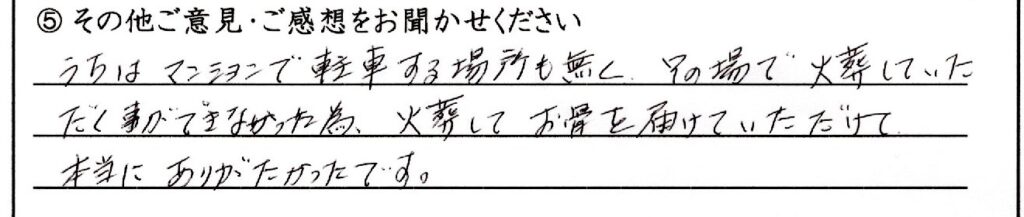 ⑤ その他ご意見・ご感想をお聞かせください
うちは マンションで 軽車する場所も無く、その場で 火葬していた
だく事ができなかった為、火葬して お骨を届けていただけて
本当に ありがたかったです。